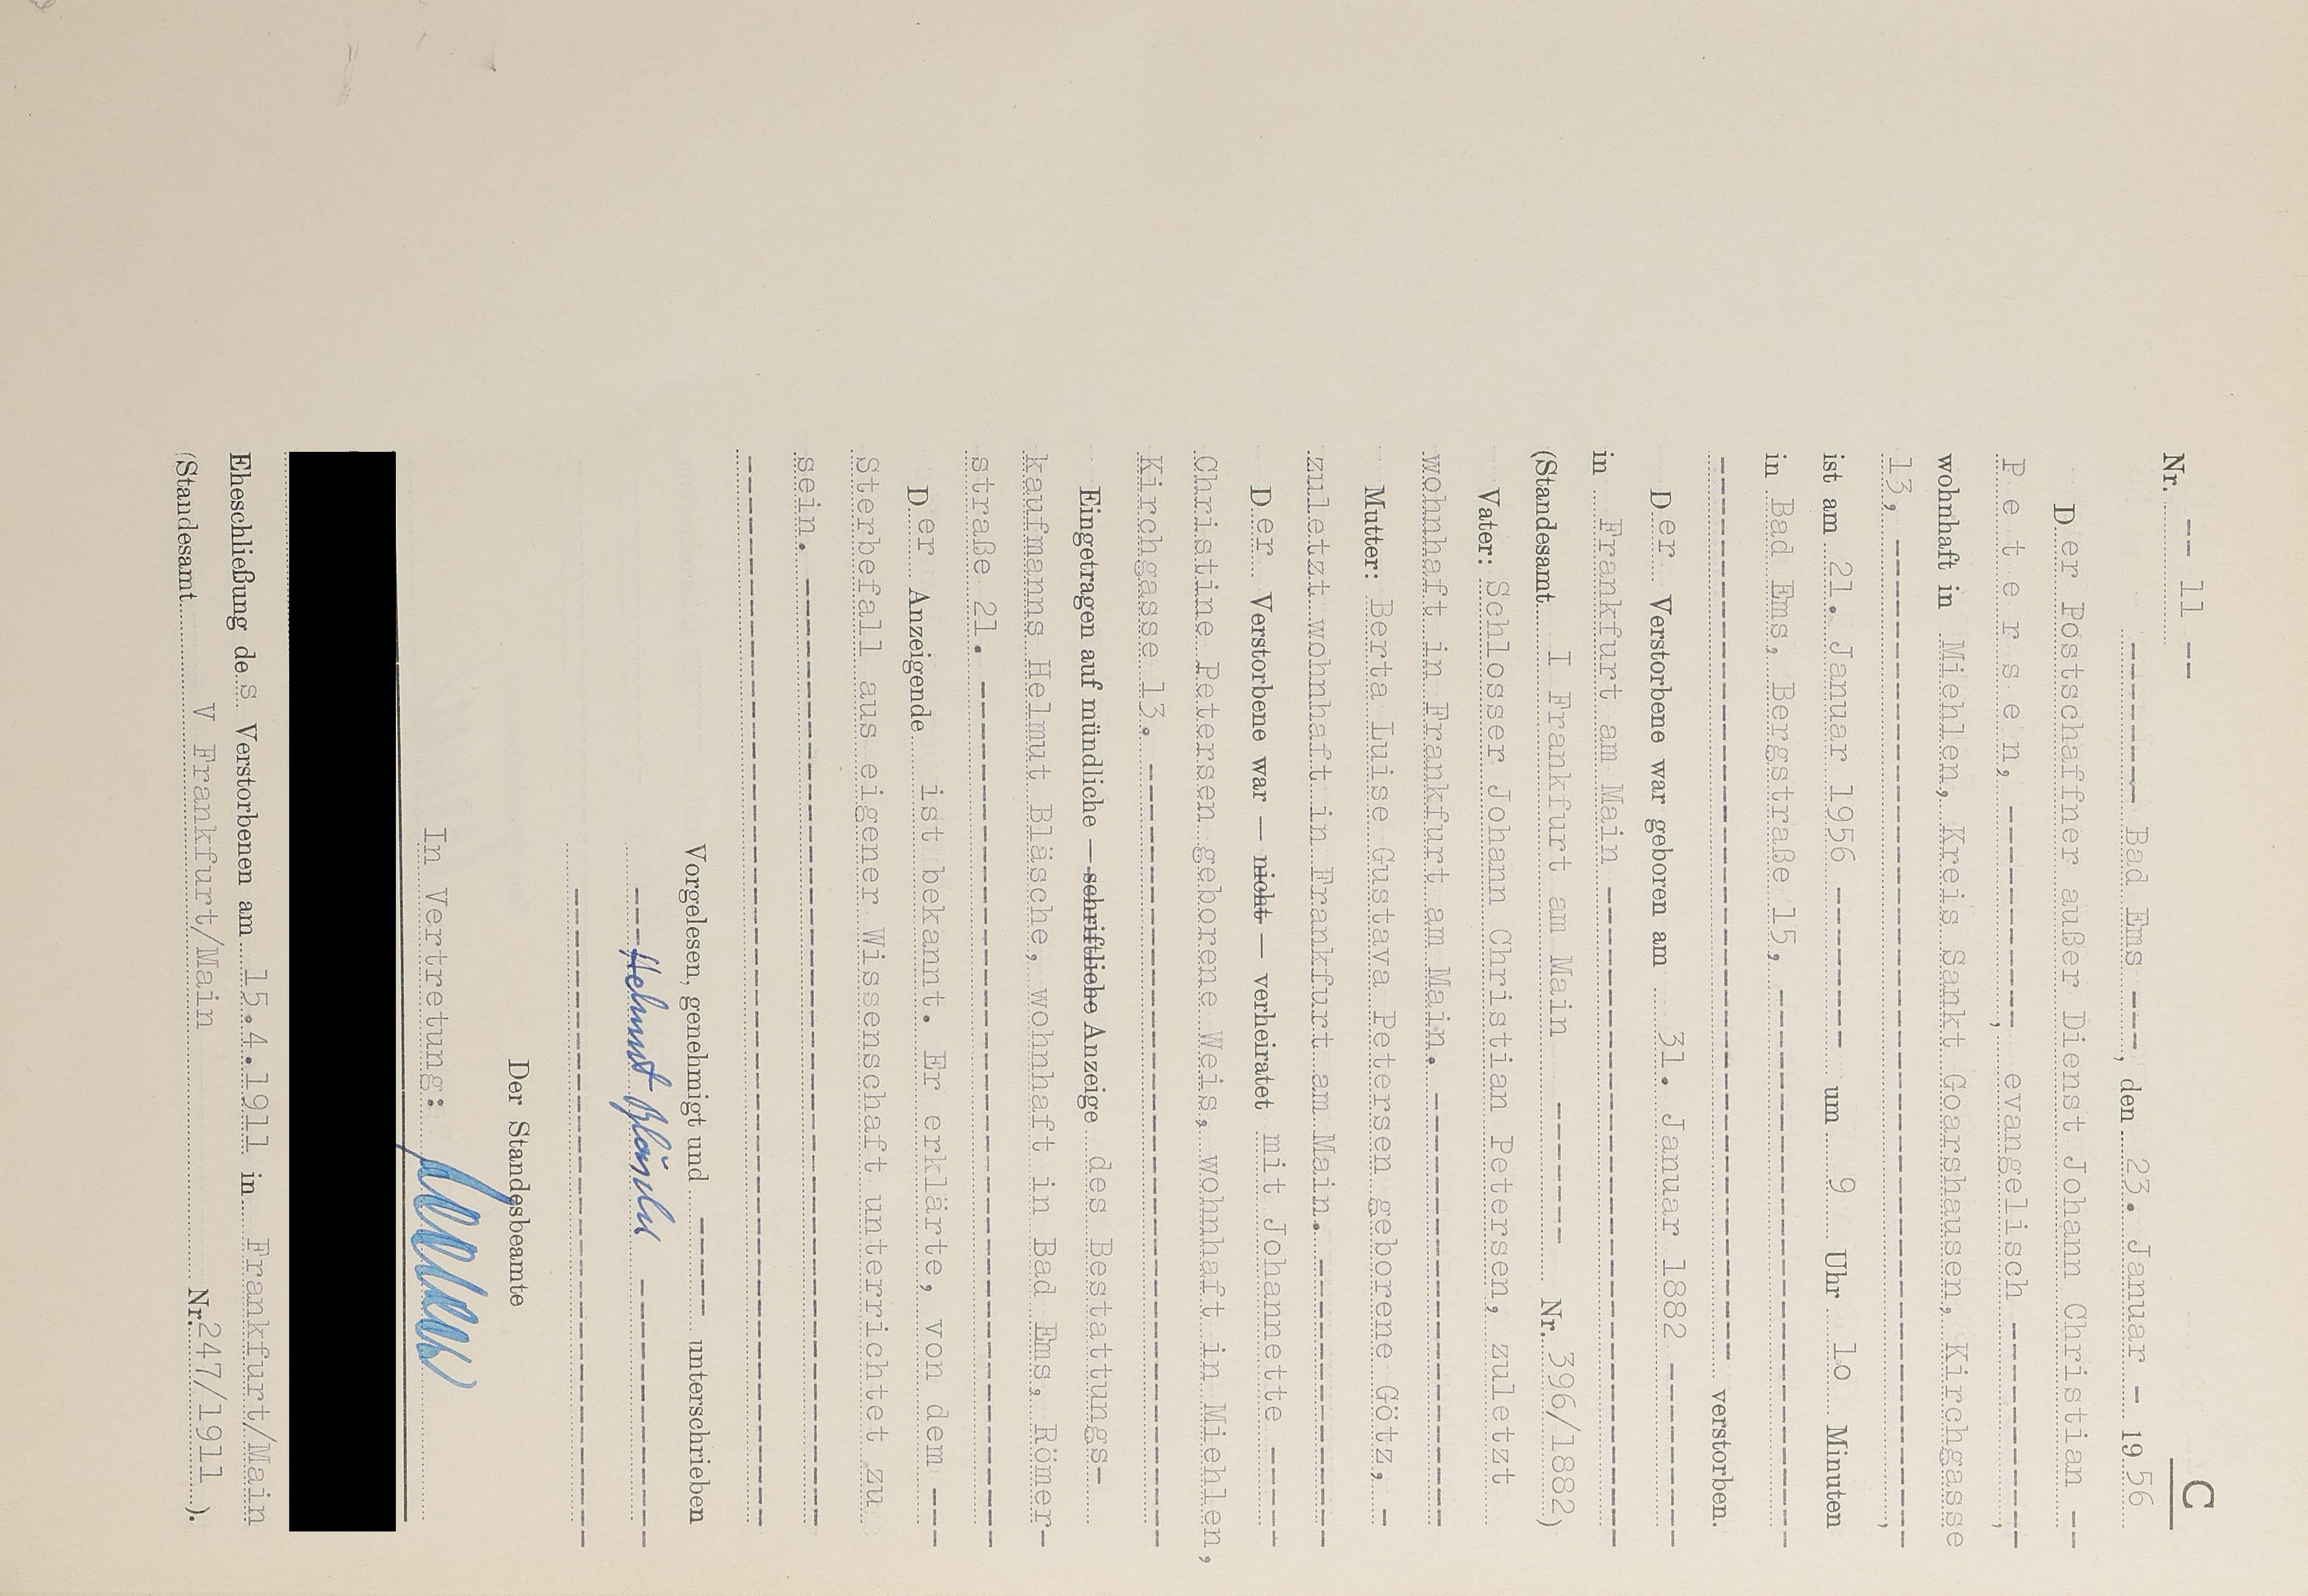 C
Nr. -- 11 --
-------- Bad Ems ---, den 23. Januar - 19 56
Der Postschaffner außer Dienst Johann Christian --
P e t e r s e n, -----------, evangelisch -----------,
wohnhaft in Miehlen, Kreis Sankt Goarshausen, Kirchgasse
13, -----------------------------------------------,
ist am 21. Januar 1956 --------- um 9 Uhr 10 Minuten
in Bad Ems, Bergstraße 15, ---------------------------
------------------------------------------- verstorben.
Der Verstorbene war geboren am 31. Januar 1882 ---------
in Frankfurt am Main --------------------------------
(Standesamt I Frankfurt am Main -------- Nr. 396/1882)
Vater: Schlosser Johann Christian Petersen, zuletzt
wohnhaft in Frankfurt am Main. ---------------------
Mutter: Berta Luise Gustava Petersen geborene Götz, -
zuletzt wohnhaft in Frankfurt am Main. --------------
Der Verstorbene war — nicht — verheiratet mit Johannette -----
Christine Petersen geborene Weis, wohnhaft in Miehlen,
Kirchgasse 13. ---------------------------------------
Eingetragen auf mündliche — schriftliche Anzeige des Bestattungs-
kaufmanns Helmut Bläsche, wohnhaft in Bad Ems, Römer-
straße 21. -------------------------------------------
Der Anzeigende ist bekannt. Er erklärte, von dem ---
Sterbefall aus eigener Wissenschaft unterrichtet zu
sein. ------------------------------------------------
------------------------------------------------------
Vorgelesen, genehmigt und ------ unterschrieben
---- Helmut Bläsche ---------------
---------------------------------------
Der Standesbeamte
In Vertretung:
Eheschließung des Verstorbenen am 15.4.1911 in Frankfurt/Main
(Standesamt V Frankfurt/Main Nr. 247/1911 ).